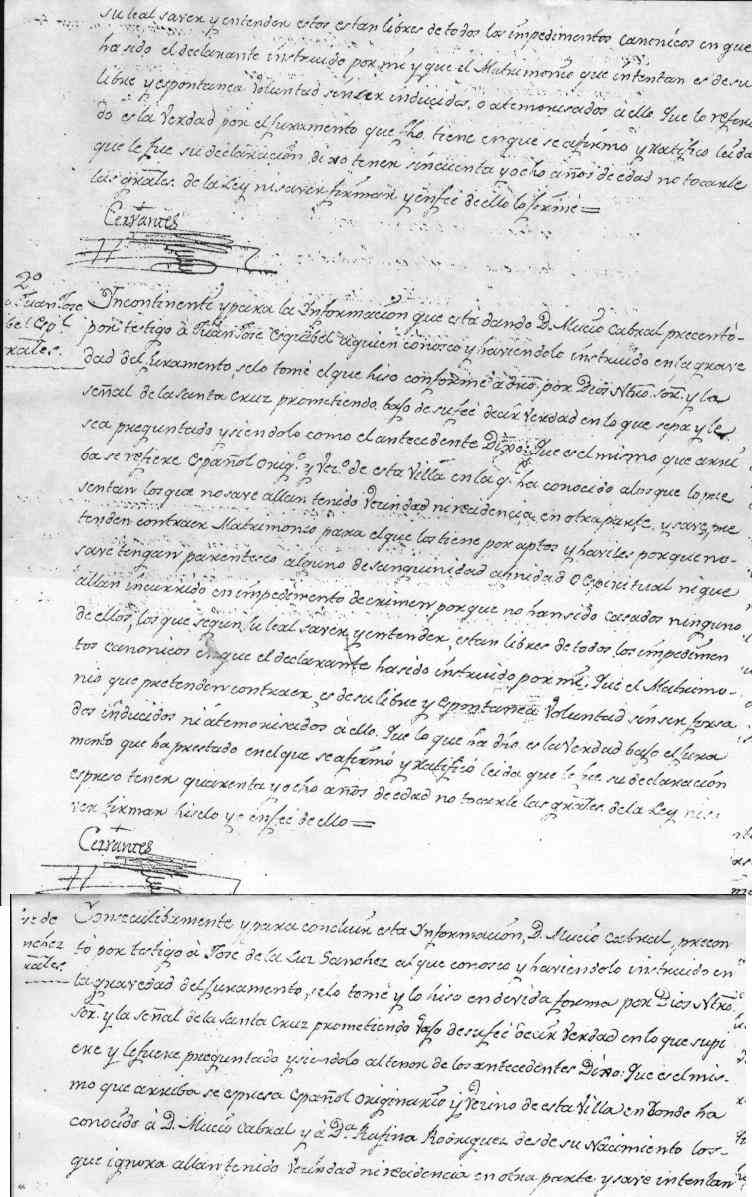 su leal saver y entender estos estan libres de todos los impedimentos canonicos en que
ha sido el declarante instruido por mi y que el Matrimonio que intentan es de su
libre y espontanea Voluntad sin ser inducidos, o atemorisados à ello. Que lo referi
do es la Verdad por el Juramento que fho. tiene en que se afirmo y ratifico leida
que le fue su declaracion, dixo tener sincuenta y ocho años de edad no tocarle
las grales. de la Ley ni saver firmar y enfeé de ello lo firmé=
Cervantes
2º
Juan Jose
bel Espl
rales.
Incontinente y para la Informacion que está dando D. Mucio Cabral precentó-
por testigo à Juan Jose Esquibel a quien conosco y haviendolo instruido en la grave
dad del Juramento, selo tomé el que hiso conforme à dro. por Dios Ntro. Sor. y la
señal de la santa Cruz prometiendo bajo de su feé decir verdad en lo que sepa y le
sea preguntado y siendolo como el antecedente Dixo: Que es el mismo que arri
ba se refiere Español Orig.º y Vez.º de esta Villa en la q.e ha conocido alos que lo pre
sentan los que no save allan tenido Vecindad ni recidencia en otra parte, y save, pre
tenden contraer Matrimonio para el que los tiene por aptos y haviles porque no-
save tengan parentesco alguno de sanguinidad afinidad o Espiritual ni que
allan incurrido en impedimento de crimen porque no han sido casados ninguno
de ellos, los que segun su leal saver y entender, estan libres de todos los impedimen
tos canonicos en que el declarante ha sido instruido por mi: Que el Matrimo-
nio que pretenden contraer, es de su libre y espontanea Voluntad sin ser forsa
dos inducidos ni atemorisados à ello. Que lo que ha dho. es la Verdad bajo el Jura
mento que ha prestado en el que se afirmó y ratificó leida que le fue su declaracion
espreso tener quarenta y ocho años de edad no tocarle las grales. de la Ley ni sa
ver firmar hiselo yo enfeé de ello=
Cervantes
se de
nchez
rales.
Consecutibamente y para concluir esta Informacion, D. Mucio Cabral, precen
tó por testigo à Jose de la Luz Sanchez al que conosco y haviendolo instruido en
la gravedad del Juramento, selo tomé y lo hiso en devida forma por Dios Ntro.
Sor. y la señal de la Santa Cruz prometiendo vajo de su feé decir Verdad en lo que supi
ere y le fuere preguntado y siendolo al tenor de los antecedentes Dixo: Que es el mis-
mo que arriba se espresa Español Originario y Vecino de esta Villa en Donde ha
conocido à D. Mucio Cabral y à Da. Rafina Rodriguez desde su Nacimiento los-
que ignora allan tenido Vecindad ni recidencia en otra parte y save intentan